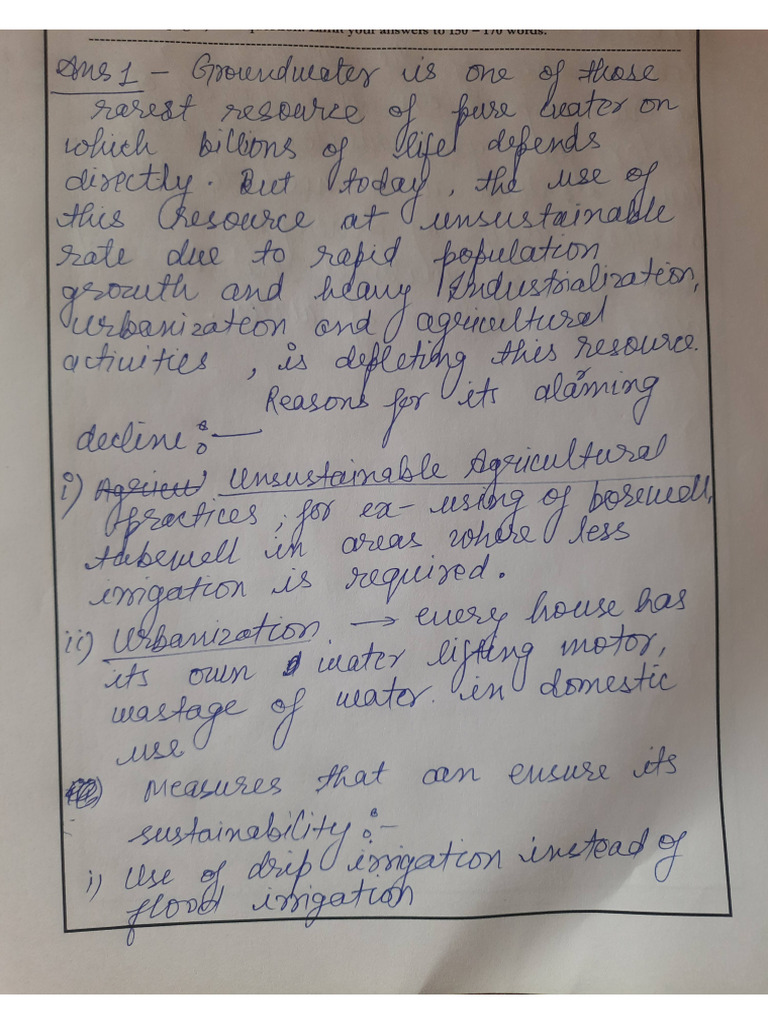 question. Limit your answers to 150 – 170 words.
Ans 1 – Groundwater is one of those
rarest resource of pure water on
which billions of life depends
directly. But today, the use of
this resource at unsustainable
rate due to rapid population
growth and heavy Industrialization,
urbanization and agricultural
activities, is depleting this resource.
Reasons for its alarming
decline :—
i) Unsustainable Agricultural
practices, for ex- using of borewell,
tubewell in areas where less
irrigation is required.
ii) Urbanization. → every house has
its own water lifting motor,
wastage of water. in domestic
use
Measures that can ensure its
sustainability :-
i) Use of drip irrigation instead of
flood irrigation